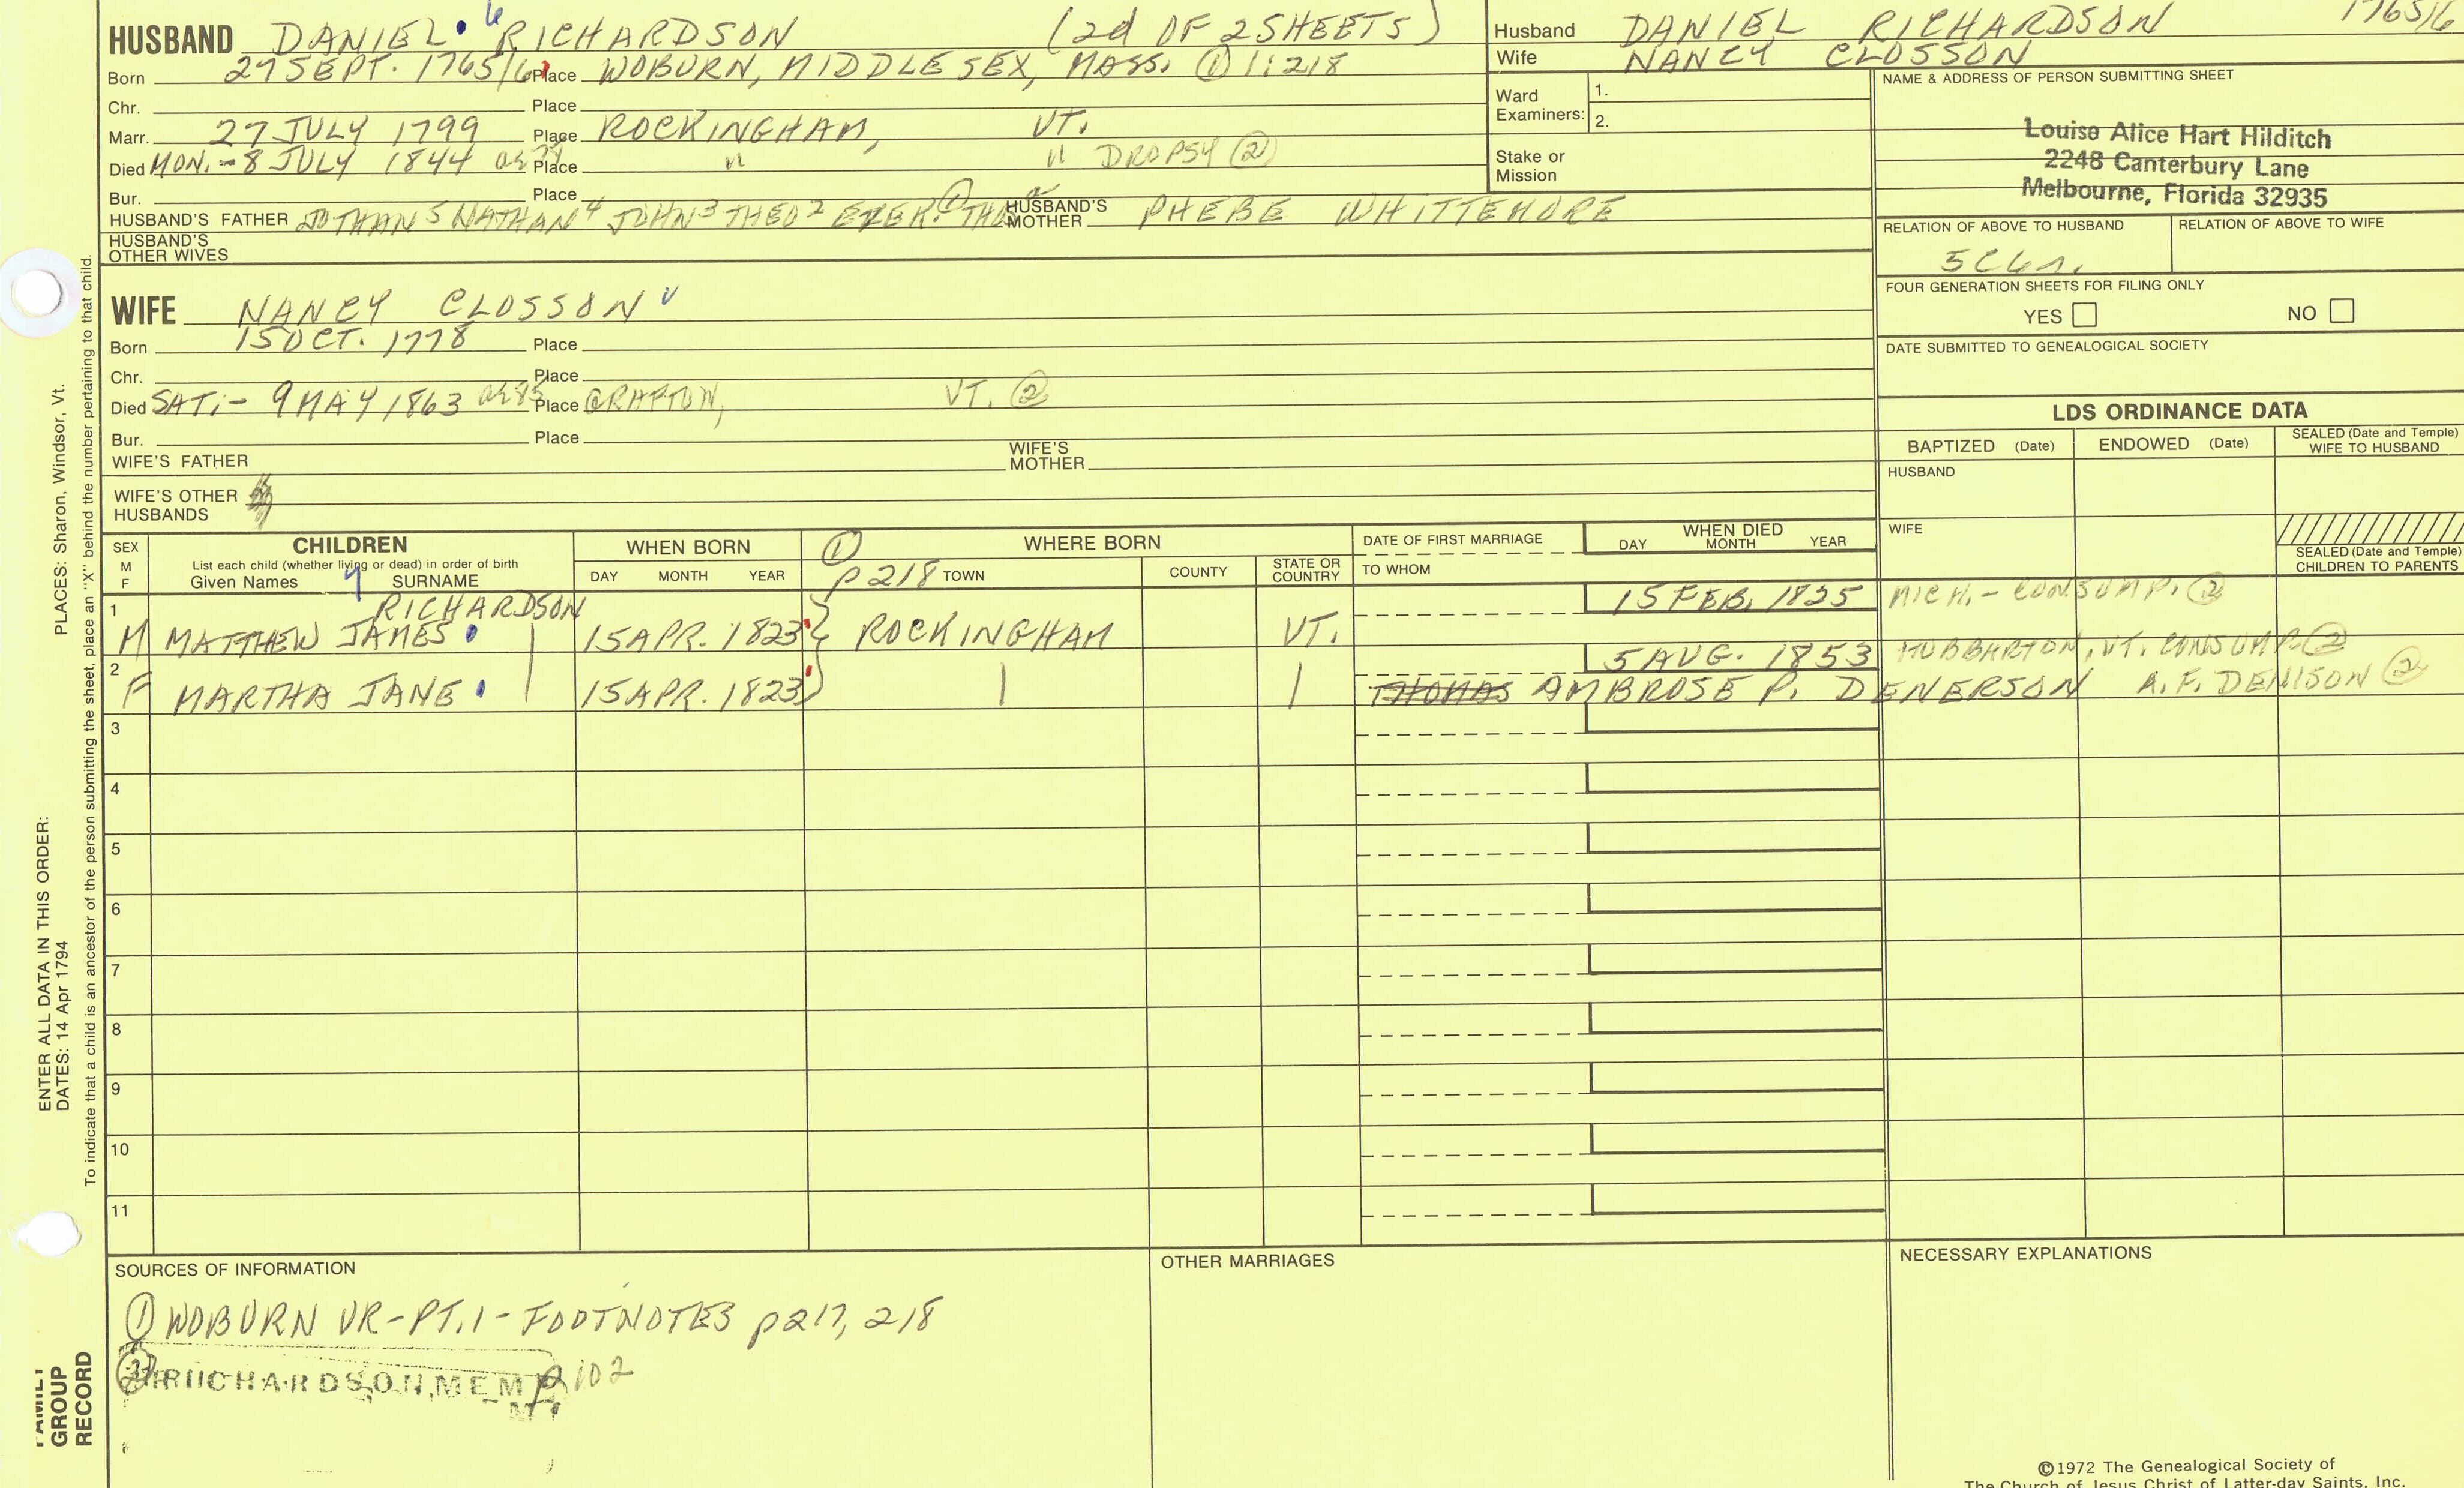 HUSBAND DANIEL 6 RICHARDSON (2d OF 2 SHEETS)
Born 27 SEPT. 1765/6 Place WOBURN, MIDDLESEX, MASS. ① 1:218
Chr. Place
Marr. 27 JULY 1799 Place ROCKINGHAM, VT.
Died MON. - 8 JULY 1844 Place " " DROPSY ②
Bur. Place
HUSBAND'S FATHER JOTHAN 5 NATHAN 4 JOHN 3 THEO 2 EZEK. HUSBAND'S MOTHER PHEBE WHITTEMORE
HUSBAND'S OTHER WIVES
WIFE NANCY CLOSSON
Born 15 OCT. 1778 Place
Chr. Place
Died SAT. - 9 MAY 1863 ag 85 Place GRAFTON, VT. ②
Bur. Place
WIFE'S FATHER WIFE'S MOTHER
WIFE'S OTHER HUSBANDS
Husband DANIEL RICHARDSON 1765/6
Wife NANCY CLOSSON
Ward Examiners: 1.
2.
Stake or Mission
NAME & ADDRESS OF PERSON SUBMITTING SHEET
Louise Alice Hart Hilditch
2248 Canterbury Lane
Melbourne, Florida 32935
RELATION OF ABOVE TO HUSBAND RELATION OF ABOVE TO WIFE
FOUR GENERATION SHEETS FOR FILING ONLY
YES NO
DATE SUBMITTED TO GENEALOGICAL SOCIETY
LDS ORDINANCE DATA
BAPTIZED (Date) ENDOWED (Date) SEALED (Date and Temple) WIFE TO HUSBAND
HUSBAND
WIFE
SEALED (Date and Temple) CHILDREN TO PARENTS
SEX M F
CHILDREN
List each child (whether living or dead) in order of birth
Given Names 7 SURNAME
WHEN BORN
DAY MONTH YEAR
① p218
WHERE BORN
TOWN COUNTY STATE OR COUNTRY
DATE OF FIRST MARRIAGE
TO WHOM
WHEN DIED
DAY MONTH YEAR
RICHARDSON
1 M MATTHEW JAMES 15 APR. 1823 ROCKINGHAM VT. 15 FEB. 1825 MICH. - CONSUMP. ②
2 F MARTHA JANE 15 APR. 1823 | | 5 AUG. 1853 HUBBARTON, VT. CONSUMP. ②
THOMAS AMBROSE P. DENERSON A. F. DENISON ②
3
4
5
6
7
8
9
10
11
SOURCES OF INFORMATION
① WOBURN VR-PT.1 - FOOTNOTES p217, 218
② RICHARDSON MEM p102
OTHER MARRIAGES
NECESSARY EXPLANATIONS
©1972 The Genealogical Society of
The Church of Jesus Christ of Latter-day Saints, Inc.
PLACES: Sharon, Windsor, Vt.
To indicate that a child is an ancestor of the person submitting the sheet, place an "X" behind the number pertaining to that child.
ENTER ALL DATA IN THIS ORDER:
DATES: 14 Apr 1794
FAMILY
GROUP
RECORD